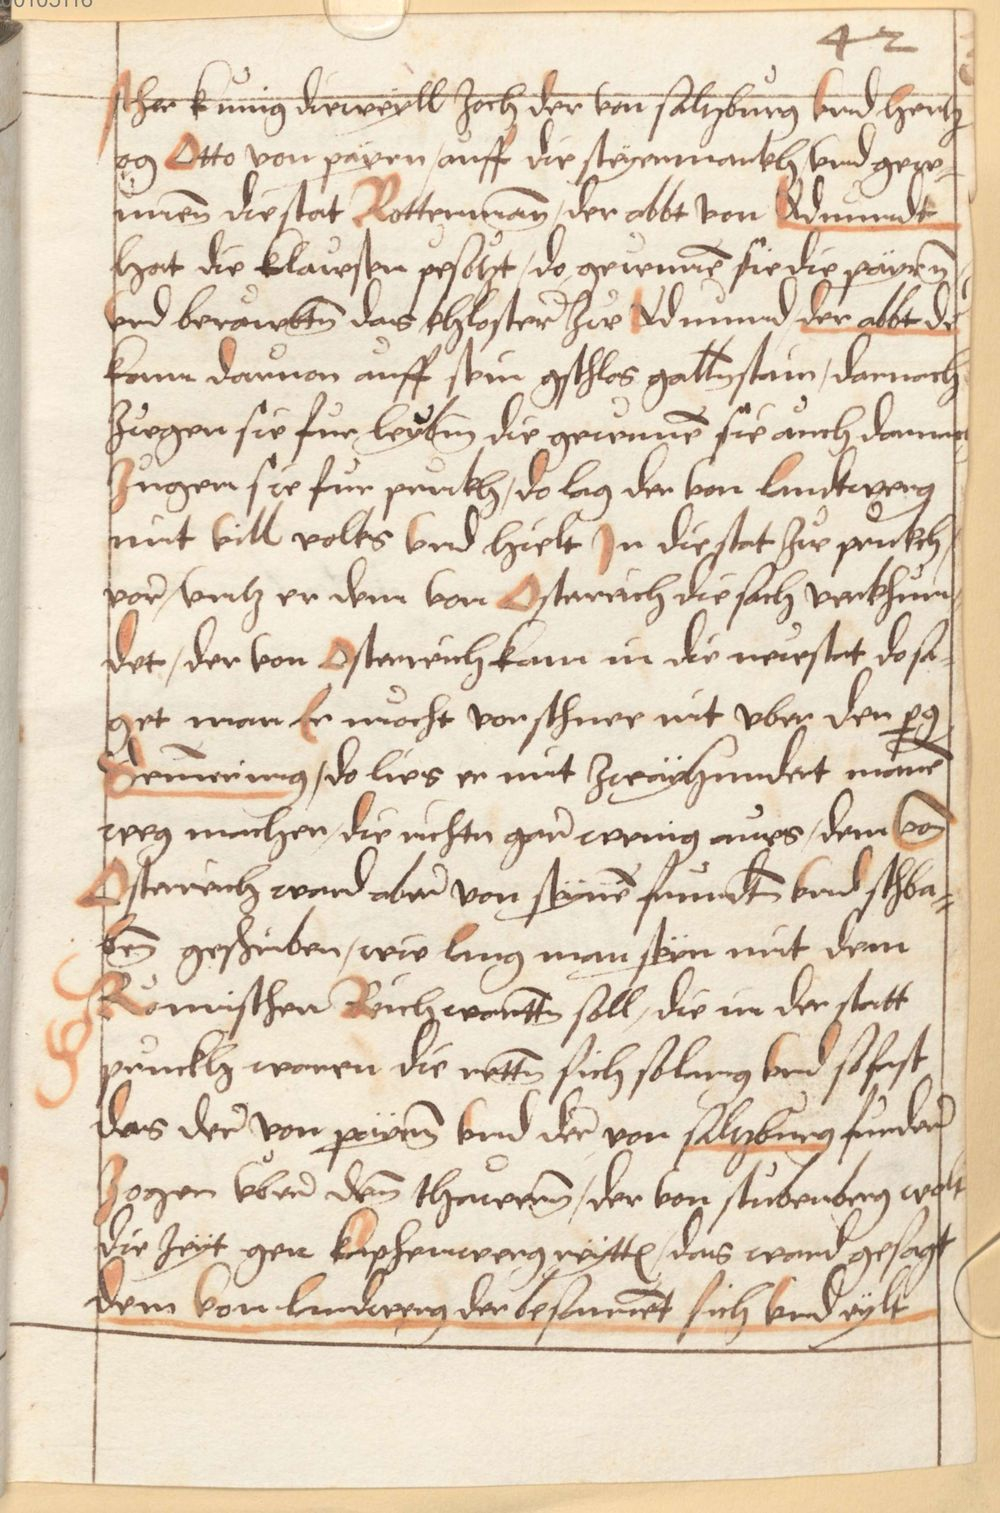 00105116
42
scher kunig dieweyll zoch der von saltzburg vnd hertz
og Otto von payren / auff die steyermarckh vnd gewu-
nnen die stat Rottenmann / der abbt von Admundt
hat die klausen pesetzt / do gewunnen sie die payrn
vnd beraubtn das khloster zue Admund der abbt de
kam daruon auff sein gschlos gallnstain / darnach
zugen sie fur leubm die gewunnen sie auch darnach
zugen sie fur pruckh / do lag der von landtwerg
mit vill volks vnd hielt In die stat zue pruckh
vor / vntz er dem von Osterreich die sach verkhun
det / der von Osterreich kam in die neustat do sa-
get man Er mocht vor schnee nit vber den perg
Semering / do lies er mit zwayhundert mannen
weg machen / die richtn gar wenig aus / dem von
Osterreich ward aber von seynen freundtn vnd schba-
ben geschriben / wie lang man seyn mit dem
Romischen Reich wartten soll / die in der statt
pruckh waren die rettn sich solang vnd so fast
das der von payrn vnd der von saltzburg hinder
zogen vber den thauern / der von stubenberg wolt
die zeyt gen kaphenwerg reytten / das ward gesagt
dem von landwerg der besamet sich vnd eylt